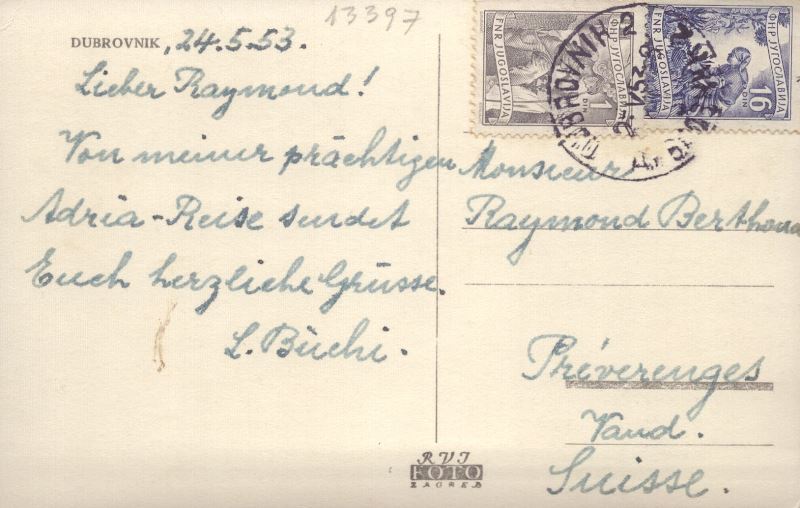 13397
DUBROVNIK, 24.5.53.
Lieber Raymond!
Von meiner prächtigen
Adria-Reise sendet
Euch herzliche Grüsse.
L. Büchi.
Monsieur
Raymond Berthoud
Préverenges
Vaud.
Suisse.
ФНР ЈУГОСЛАВИЈА
FNR JUGOSLAVIJA
1 DIN
ФНР ЈУГОСЛАВИЈА
FNR JUGOSLAVIJA
16 DIN
DUBROVNIK 2
RVI
FOTO
ZAGREB